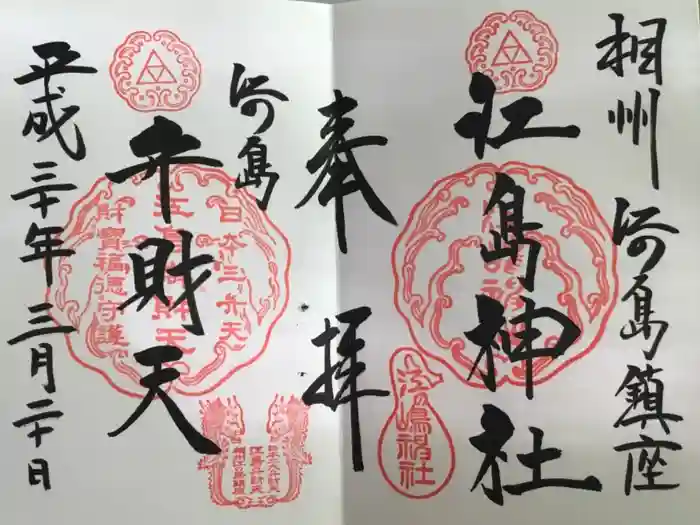 相州
江の島鎮座
江島神社
江の嶋神社
奉拝
江の島
弁財天
日本三弁天
財寶福徳守護
平成三十年三月二十日